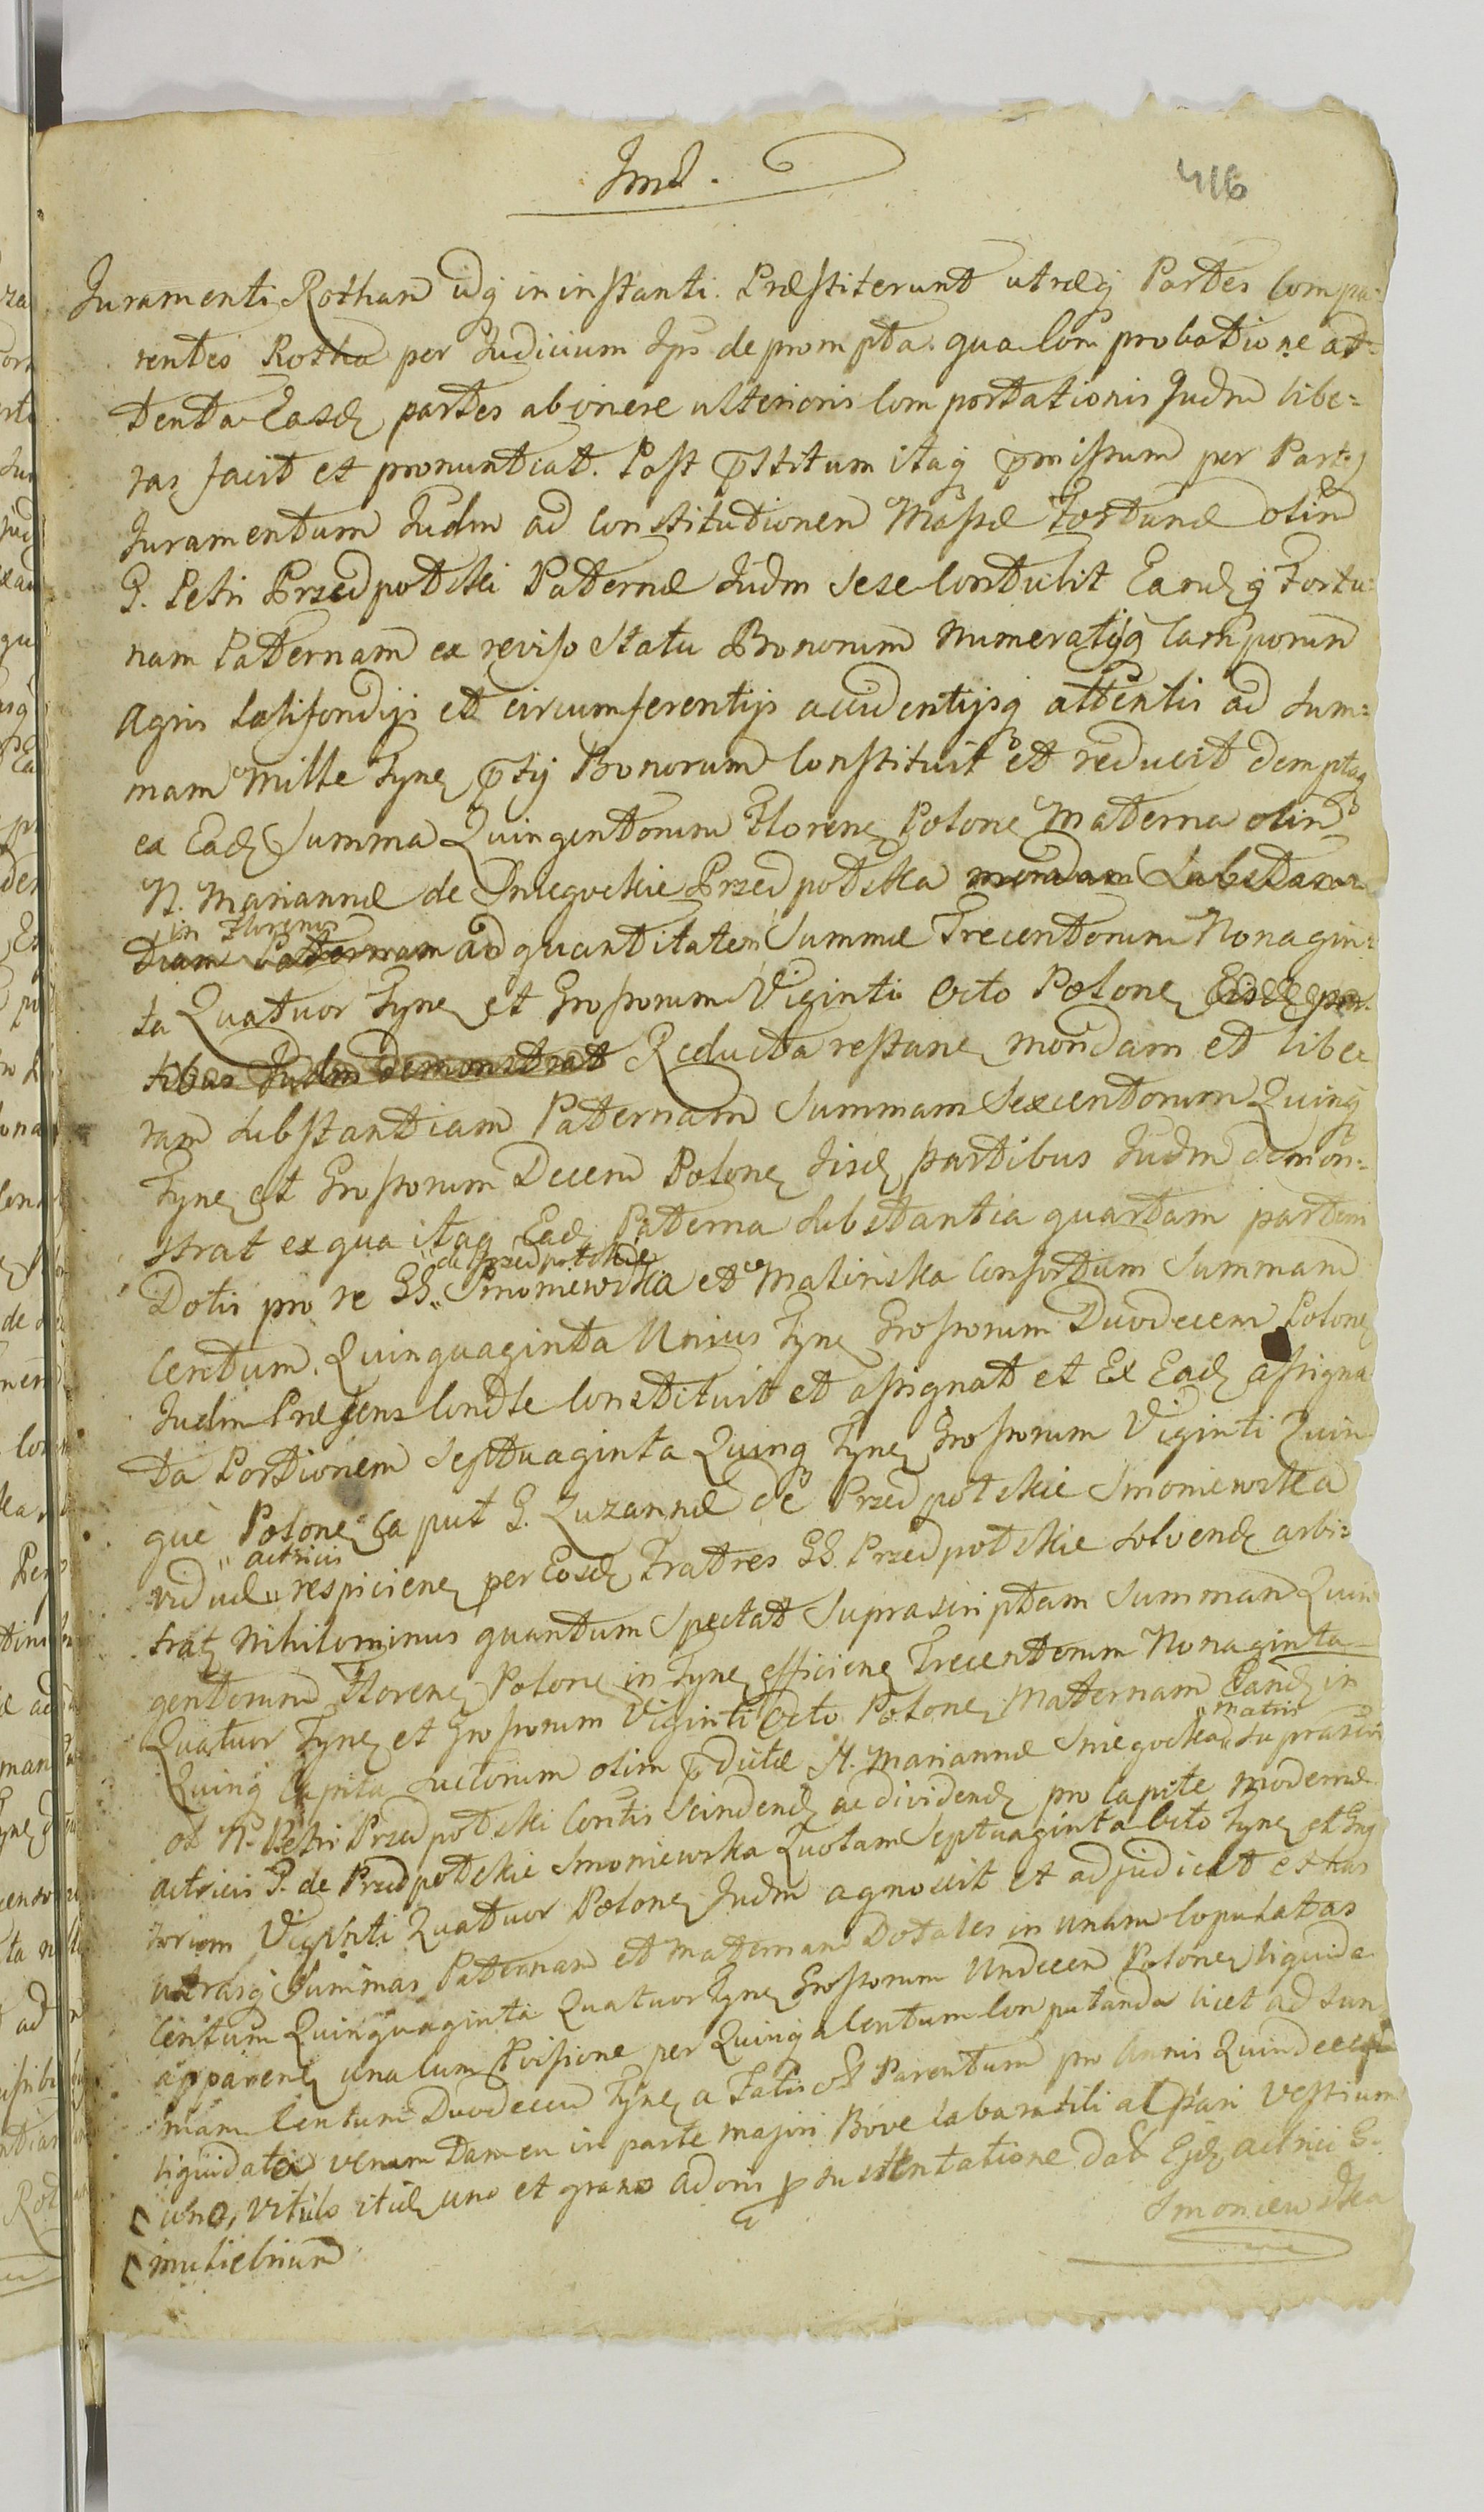 416
Juramenti Rotham idq in instanti. Præstiterunt utræq Partes compa-
rentes Rotha per Judicium Ips deprompta. qua com probatione at-
tenta Easd partes ab onere ulterioris comportationis Judm libe=
ras facit et pronuntiat. Post p̄stitum itaq p̄missum per Partes
Juramentum Judm ad constitutionem Massæ Fortunæ olim
G. Petri Przedpotski Paternæ Judm sese contulit Eandq Fortu=
nam Paternam ex reviso statu Bonorum numeratisq Camporum
Agris Latifondijs et circumferentijs accidentijsq attentis ad sum=
mam Mille Tyne p̄tij Bonorum constituit et reducit demptaq
ex Ead Summa Quingentorum Florene Polone Materna olim
N. Mariannæ de Smegockie Przedpotska mondam Substan=
in Florenis
tiam Paternam ad quantitatem Summæ Trecentorum Nonagin=
ta Quatuor Tyne et Grossorum Viginti Octo Polone Eisd par
tibus Judm demonstrat Reducta restane mondam et libe
ram substantiam Paternam Summam Sexcentorum Quinq
Tyne et Grossorum Decem Polone Iisd partibus Judm demon=
strat ex qua itaq Ead Paterna substantia quartam partem
de Przedpotskie
Dotis pro re GG. Smoniewska et Malinska Consortum Summam
Centum. Quinquaginta Unius Tyne Grossorum Duodecem Polone
Judm Præsens condle constituit et assignat et Ex Ead assigna
ta Portionem Septuaginta Quinq Tyne Grossorum Viginti Quin
que Polone Caput G. Zuzannæ de Przedpotskie Smoniewska
actricis
viduæ respiciene per Eosd Fratres GG. Przedpotskie solvend arbi=
trat nihilominus quantum Spectat Suprascriptam Summam Quin
gentorum Florene Polone in Tyne efficiene Trecentorum Nonaginta
Quatuor Tyne et Grossorum Viginti Octo Polone Maternam Eand in
matris
Quinq Capita suctorum olim p̄dictæ N. Mariannæ Smegocka supra
ol N. Petri Przedpotski Contis scindend ac dividend pro capite modernæ
actricis G. de Przedpotskie Smoniewska Quotam Septuaginta Octo Tyne et Gros
sorum Viginti Quatuor Polone Judm agnoscit et adjudicat et has
utrasq Summas Paternam et Maternam Dotales in unam coputatas
Centum Quinquaginta Quatuor Tyne Grossorum Undecem Polone liquida
apparene una cum Provisione per Quinq a Centum computanda licet ad sum
mam Centum Duodecem Tyne a Fatis Parentum pro Annis Quindecem
liquidata verum tamen in parte majori Bove labaratili al pari Vestium
uno, vitulo itid uno et grano ad onis p sustentatione dat Ejd actrici G.
Smoniewska
muliebrium